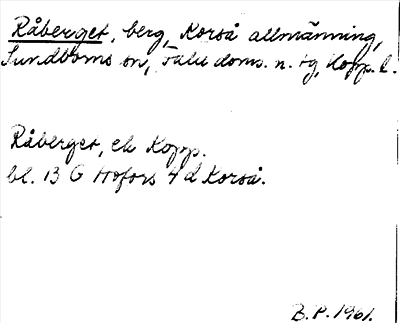 Råberget, berg, Korså allmänning,
Sundborns sn, Falu doms. n. tg, Kopp. l.
Råberget, ek Kopp.
bl. 13 G Hofors 4 d Korså.
B.P. 1961.